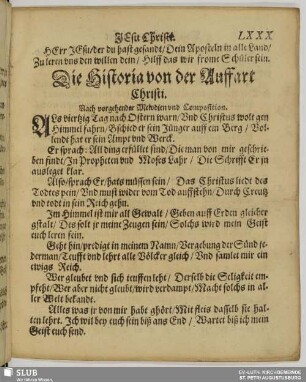 JESu Christe. LXXX
HErr JEsu der du hast gesandt/ Dein Aposteln in alle Land/
Zu leren uns den willen dein/ Hilff das wir frome Schüler sein.
Die Historia von der Auffart
Christi.
Nach vorgehender Melodien und Composition.
ALs viertzig Tag nach Ostern warn/ Und Christus wolt gen
Himmel fahrn/ Bschied er sein Jünger auff ein Berg/ Vol-
lendt hat er sein Ampt und Werk.
Er sprach: All ding erfüllet sind/ Die man von mir geschrie-
ben findt/ In Propheten und Moses Lahr/ Die Schrifft Er jn
ausleget klar.
Also sprach Er/ hats müssen sein/ Das Christus liedt des
Todtes pein/ Und must wider vom Tod aufffstehn/ Durch Creutz
und todt in sein Reich gehn.
Im Himmel ist mir all Gewalt/ Geben auff Erden gleicher
gstalt/ Des solt jr meine Zeugen sein/ Solchs wird mein Geist
euch leren fein.
Geht hin/ prediget in meinem Namn/ Vergebung der Sünd je-
derman/ Teufft und lehrt alle Völcker gleich/ Und samlet mir ein
ewigs Reich.
Wer gleubet und sich teuffen leht/ Derselb die Seligkeit em-
pfeht/ Wer aber nicht gleubt/ wird verdampt/ Macht solchs in al-
ler Welt bekandt.
Alles was jr von mir habt ghört/ Mit fleis dasselb sie hal-
ten lehrt. Ich wil bey euch sein biß ans End/ Wartet biß ich mein
Geist euch send.
SLUB
Wir führen Wissen.
EV.-LUTH. KIRCHGEMEINDE
ST. PETRI AUGUSTUSBURG